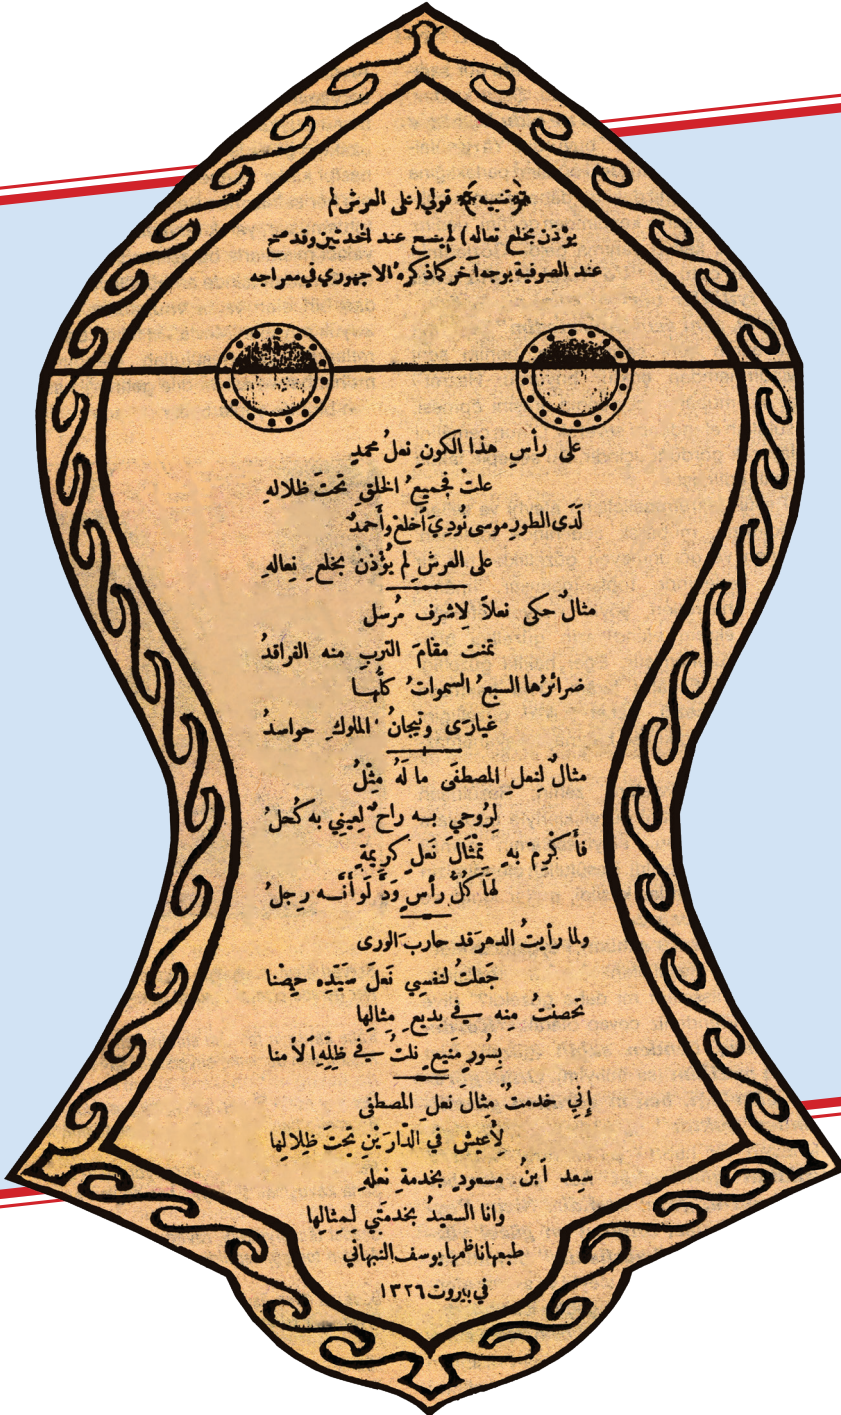 ﴿تنبيه﴾ قولي (على العرش لم
يؤذن بخلع نعاله) لم يصح عند المحدثين وقد صح
عند الصوفية بوجه آخر كما ذكره الاجهوري في معراجه
على رأسِ هذا الكونِ نعلُ محمدٍ
علتْ فجميعُ الخلقِ تحتَ ظلالهِ
لَدَى الطورِ موسى نُودِيَ اَخلعْ وأَحمدٌ
على العرشِ لم يُؤْذنْ بخلعِ نِعالهِ
مثالٌ حكى نعلاً لِاشرف مُرسل
تمنت مقامَ التربِ منه الفراقدُ
ضرائرُها السبعُ السمواتُ كلُّها
غيارَى وتيجانُ الملوكِ حواسدُ
مثالٌ لِنعلِ المصطفَى ما لَهُ مِثْلُ
لِرُوحي به راحٌ لِعيني به كُحلُ
فأَكْرِمْ بهِ تمْثَالَ نَعلٍ كريمةٍ
لهَا كُلُّ رأسٍ وَدَّ لَو أَنَّه رِجلُ
ولما رأيتُ الدهرَ قد حاربَ الورى
جَعلتُ لنفسِي نَعلَ سَيّدِه حِصْنا
تحصنتُ مِنه في بديعِ مِثالِها
بِسُورٍ مَنيعٍ نلتُ في ظِلِّهِ اَلأمنا
إِنِّي خدمتُ مِثالَ نعلِ المصطفى
لِأَعيشَ في الدّارَيْنِ تحتَ ظِلالِها
سعِد اَبنُ مسعودٍ بخدمةِ نعلهِ
وانا السعيدُ بخدمَتِي لِمثالِها
طبعها ناظمها يوسف النبهاني
في بيروت ١٣٢٦